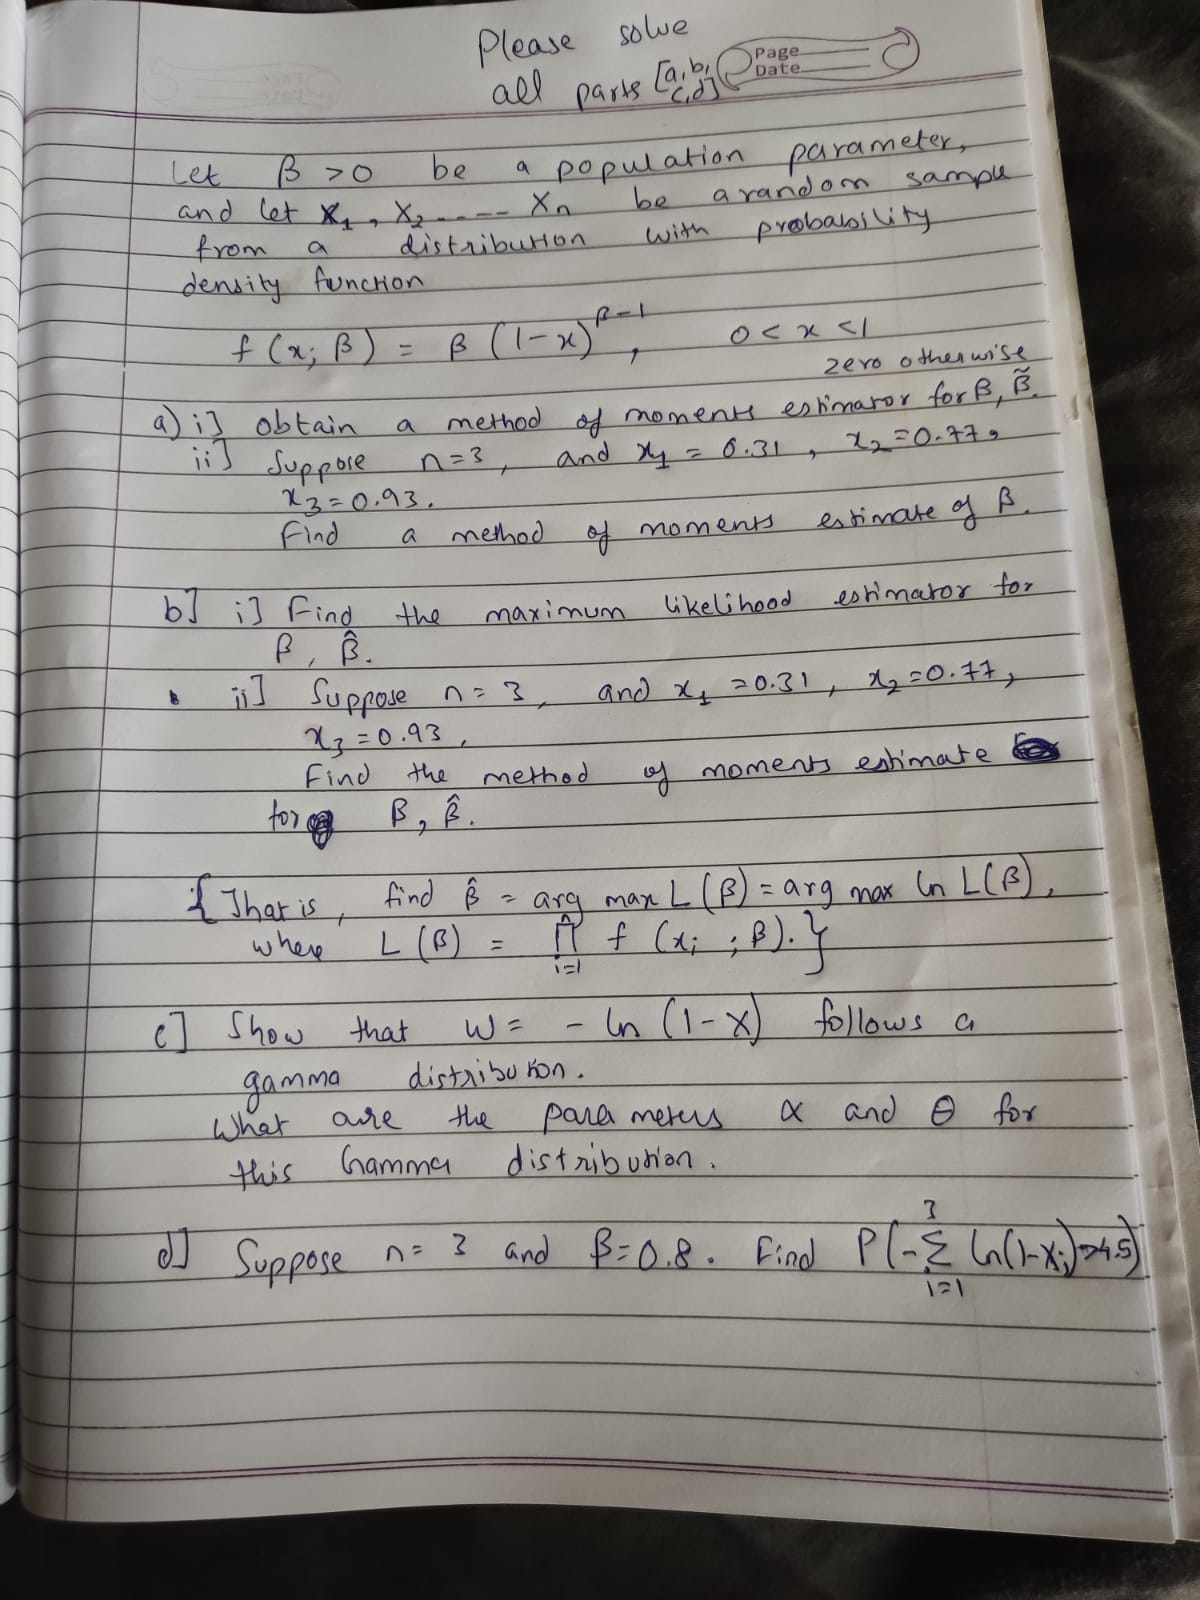 Please solve
all parts [a,b,
c,d]
Page
Date
Let β > 0 be a population parameter,
and let X₁, X₂ ---- Xn be a random sample
from a distribution with probability
density function
f (x; β) = β (1-x)^β-1, 0 < x < 1
zero otherwise
a) i] obtain a method of moments estimator for β, β̃.
ii] Suppose n=3, and x₁ = 0.31, x₂=0.77,
x₃=0.93.
Find a method of moments estimate of β.
b] i] Find the maximum likelihood estimator for
β, β̂.
ii] Suppose n=3, and x₁=0.31, x₂=0.77,
x₃=0.93,
Find the method of moments estimate
for β, β̂.
{That is, find β̂ = arg max L(β) = arg max ln L(β),
where L(β) = n∏i=1 f (xi ; β).}
c] Show that W = - ln (1-X) follows a
gamma distribution.
What are the parameters α and θ for
this Gamma distribution.
d] Suppose n= 3 and β=0.8. Find P(-3∑i=1 ln(1-Xi)>4.5)